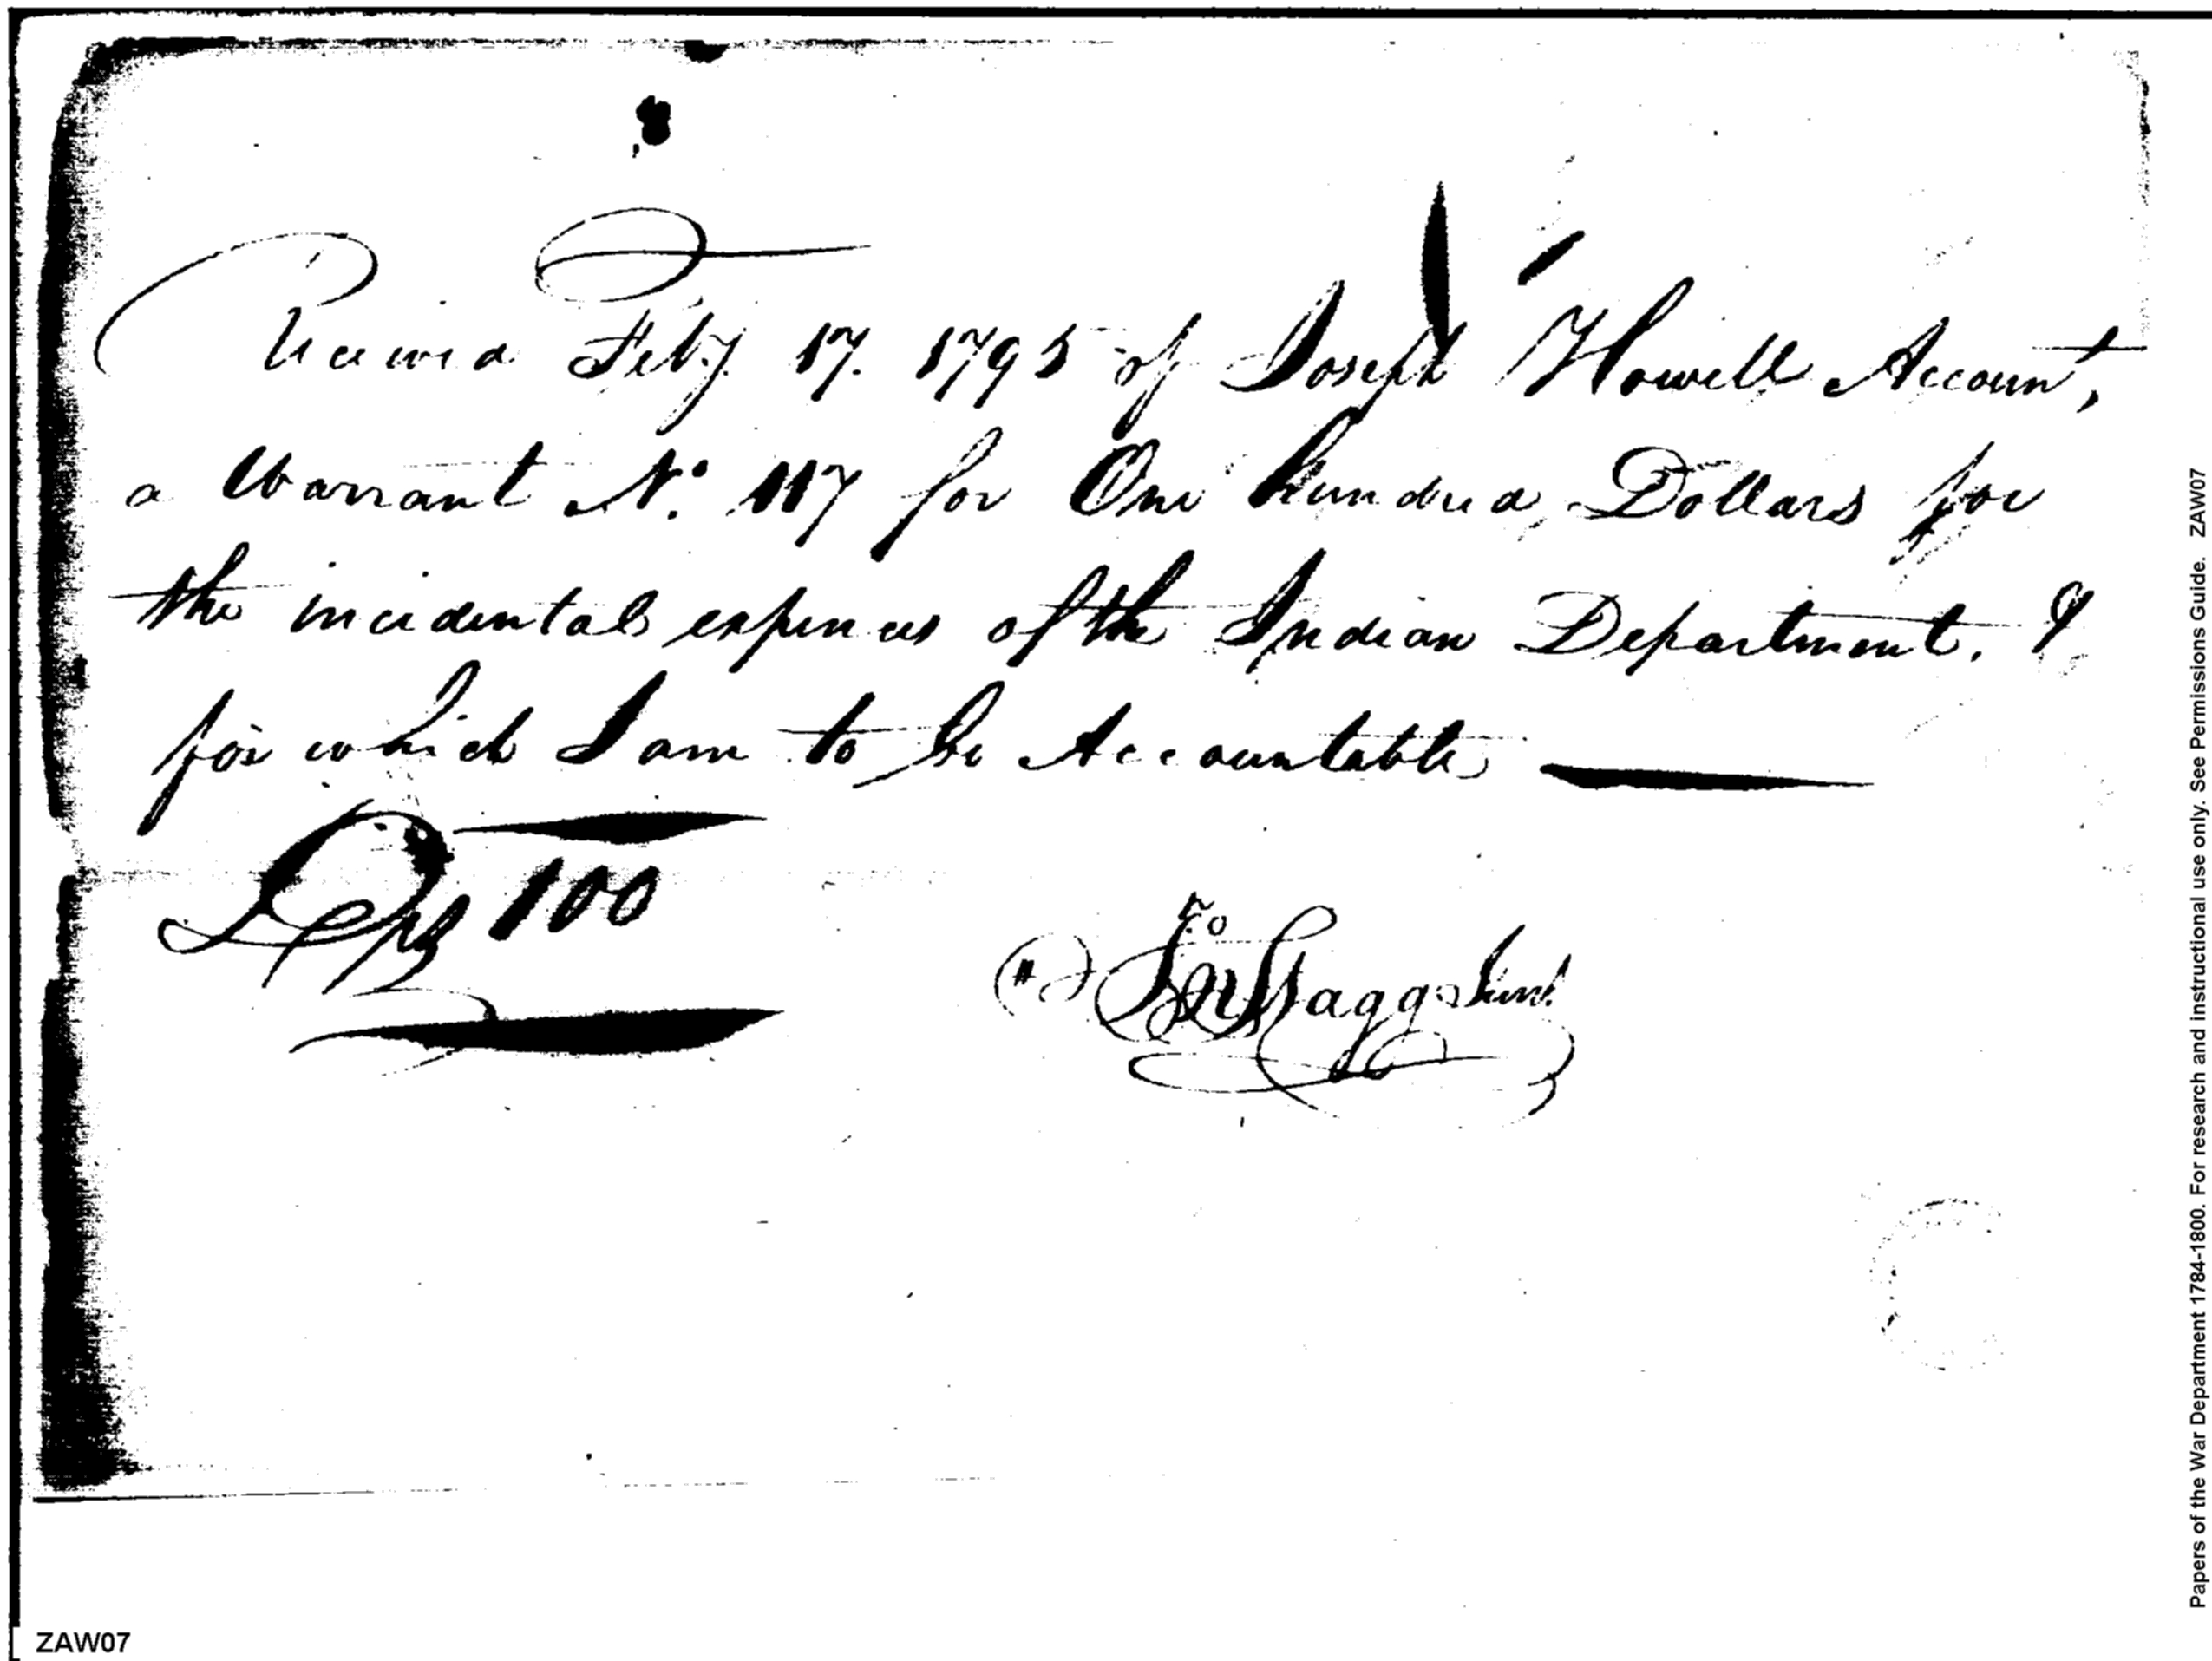 Received Feby. 17. 1795 of Joseph Howell Account,
a Warrant No. 117 for One hundred Dollars for
the incidental expences of the Indian Department. &
for which I am to be Accountable
Dolrs 100
Jno Stagg Junr.
Papers of the War Department 1784-1800. For research and instructional use only. See Permissions Guide. ZAW07
ZAW07